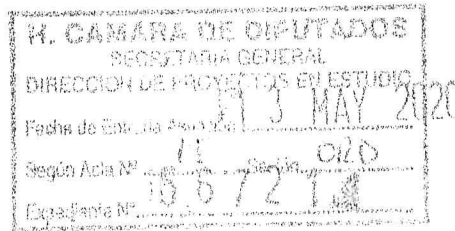 H. CAMARA DE DIPUTADOS
SECRETARIA GENERAL
DIRECCION DE PROYECTOS EN ESTUDIO
13 MAY 2020
Fecha de Entrada
Según Acta Nº 11 Sesión ORD
Expediente Nº